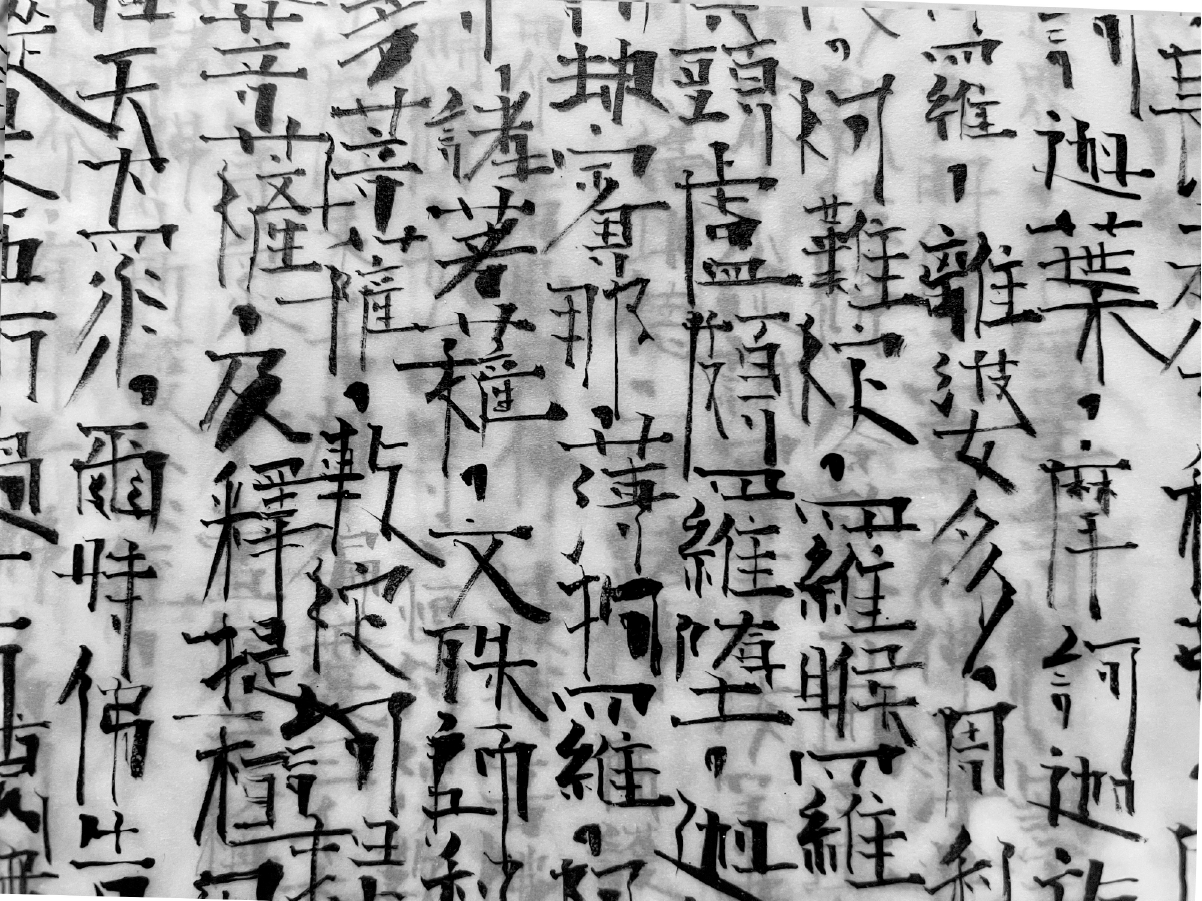 訶迦葉、摩訶迦旃
羅、離婆多、周利
阿難陀、羅睺羅
頭盧頗羅墮、迦
劫賓那、薄拘羅、阿
諸菩薩、文殊師利
多菩薩、乾陀訶提
菩薩、及釋提桓因
天大眾、爾時佛告